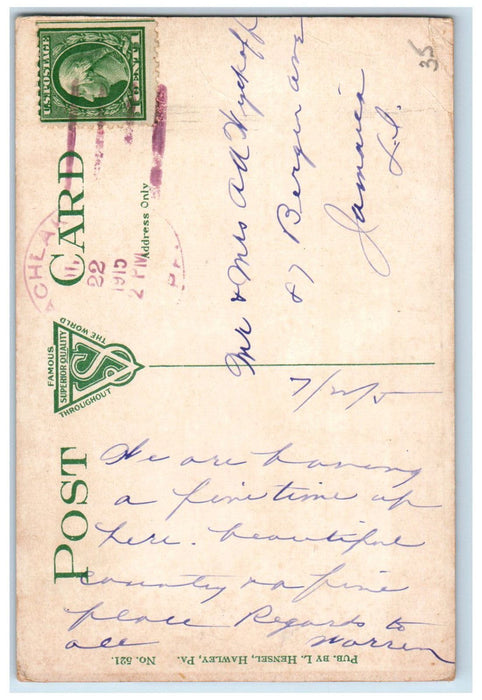 POST CARD
FAMOUS
SUPERIOR QUALITY
THROUGHOUT
THE WORLD
Address Only
U.S. POSTAGE
1 CENT 1
22
1915
2 PM
PA
35
7/22/5
We are having
a fine time up
here. beautiful
country & a fine
place Regards to
all Warren
Mr & Mrs A A Wyckoff
87 Bergen ave
Jamaica
L.I.
No. 521.
PUB. BY L. HENSEL, HAWLEY, PA.